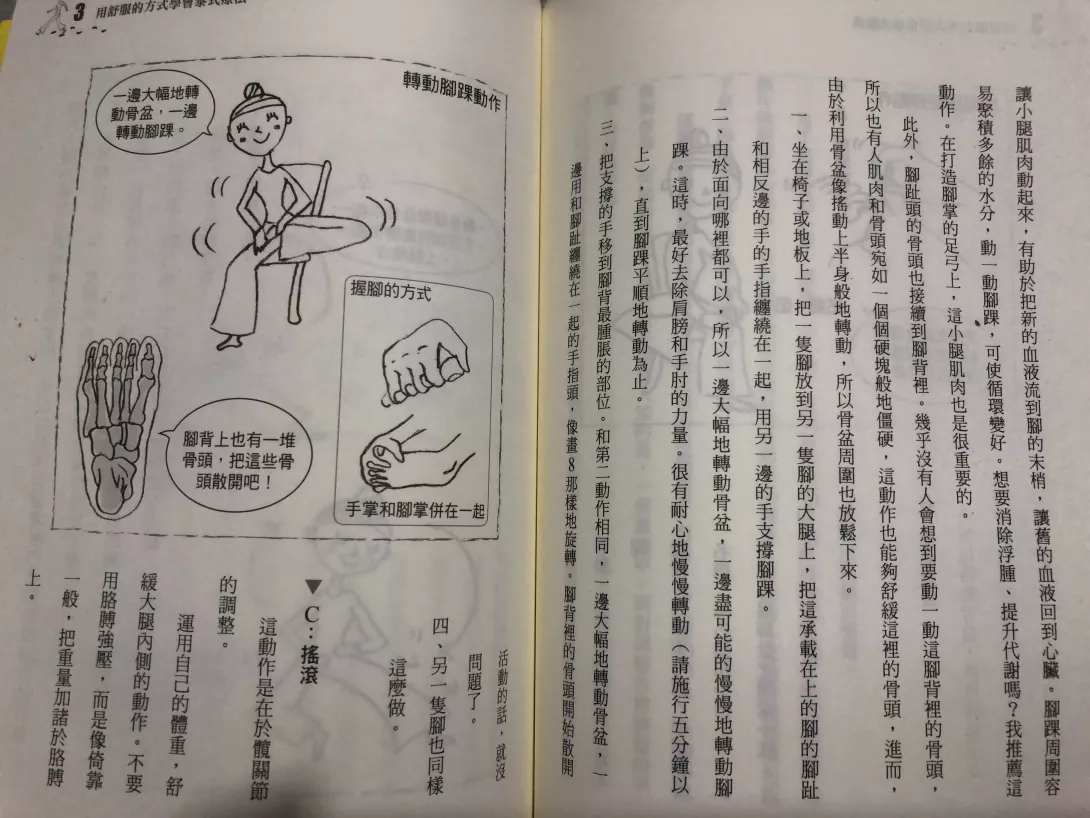 讓小腿肌肉動起來，有助於把新的血液流到腳的末梢，讓舊的血液回到心臟。腳踝周圍容
易聚積多餘的水分，動一動腳踝，可使循環變好。想要消除浮腫、提升代謝嗎？我推薦這
動作。在打造腳掌的足弓上，這小腿肌肉也是很重要的。
此外，腳趾頭的骨頭也接續到腳背裡。幾乎沒有人會想到要動一動這腳背裡的骨頭，
所以也有人肌肉和骨頭宛如一個個硬塊般地僵硬，這動作也能夠舒緩這裡的骨頭，進而，
由於利用骨盆像搖動上半身般地轉動，所以骨盆周圍也放鬆下來。
一、坐在椅子或地板上，把一隻腳放到另一隻腳的大腿上，把這承載在上的腳的腳趾
和相反邊的手的手指纏繞在一起，用另一邊的手支撐腳踝。
二、由於面向哪裡都可以，所以一邊大幅地轉動骨盆，一邊盡可能的慢慢地轉動腳
踝。這時，最好去除肩膀和手肘的力量。很有耐心地慢慢轉動（請施行五分鐘以
上），直到腳踝平順地轉動為止。
三、把支撐的手移到腳背最腫脹的部位。和第二動作相同，一邊大幅地轉動骨盆，一
邊用和腳趾纏繞在一起的手指頭，像畫8那樣地旋轉。腳背裡的骨頭開始散開
3 用舒服的方式學會泰式療法
轉動腳踝動作
一邊大幅地轉
動骨盆，一邊
轉動腳踝。
握腳的方式
手掌和腳掌併在一起
腳背上也有一堆
骨頭，把這些骨
頭散開吧！
活動的話，就沒
問題了。
四、另一隻腳也同樣
這麼做。
▼C：搖滾
這動作是在於髖關節
的調整。
運用自己的體重，舒
緩大腿內側的動作。不要
用胳膊強壓，而是像倚靠
一般，把重量加諸於胳膊
上。